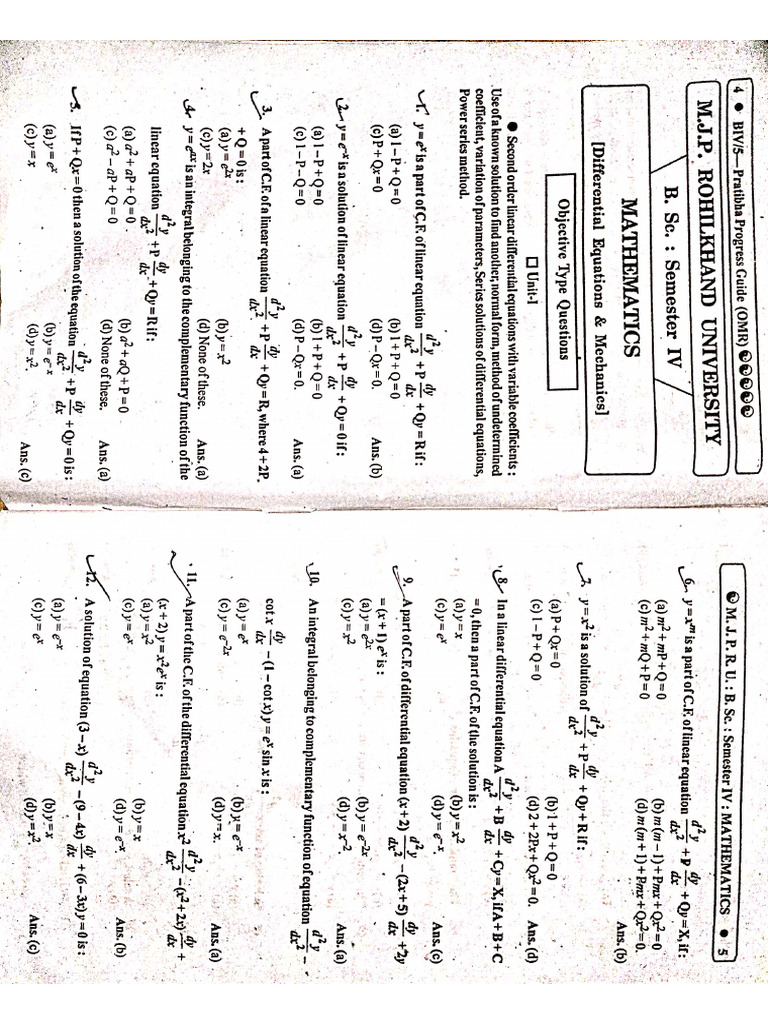 4 ● BIV/5— Pratibha Progress Guide (OMR)
M.J.P. ROHILKHAND UNIVERSITY
B. Sc. : Semester IV
MATHEMATICS
[Differential Equations & Mechanics]
Objective Type Questions
□ Unit-I
● Second order linear differential equations with variable coefficients :
Use of a known solution to find another, normal form, method of undetermined
coefficient, variation of parameters, Series solutions of differential equations,
Power series method.
1. y = eˣ is a part of C.F. of linear equation d²y/dx² + P dy/dx + Qy = R if :
(a) 1 – P + Q = 0 (b) 1 + P + Q = 0
(c) P + Qx = 0 (d) P – Qx = 0. Ans. (b)
2. y = e⁻ˣ is a solution of linear equation d²y/dx² + P dy/dx + Qy = 0 if :
(a) 1 – P + Q = 0 (b) 1 + P + Q = 0
(c) 1 – P – Q = 0 (d) P – Qx = 0. Ans. (a)
3. A part of C.F. of a linear equation d²y/dx² + P dy/dx + Qy = R, where 4 + 2P
+ Q = 0 is :
(a) y = e²ˣ (b) y = x²
(c) y = 2x (d) None of these. Ans. (a)
4. y = eᵃˣ is an integral belonging to the complementary function of the
linear equation d²y/dx² + P dy/dx + Qy = R if :
(a) a² + aP + Q = 0 (b) a² + aQ + P = 0
(c) a² – aP + Q = 0 (d) None of these. Ans. (a)
5. If P + Qx = 0 then a solution of the equation d²y/dx² + P dy/dx + Qy = 0 is :
(a) y = eˣ (b) y = e⁻ˣ
(c) y = x (d) y = x². Ans. (c)
M. J. P. R. U. : B. Sc. : Semester IV : MATHEMATICS ● 5
6. y = xᵐ is a part of C.F. of linear equation d²y/dx² + P dy/dx + Qy = X, if :
(a) m² + mP + Q = 0 (b) m (m – 1) + Pmx + Qx² = 0
(c) m² + mQ + P = 0 (d) m (m + 1) + Pmx + Qx² = 0.
Ans. (b)
7. y = x² is a solution of d²y/dx² + P dy/dx + Qy + R if :
(a) P + Qx = 0 (b) 1 + P + Q = 0
(c) 1 – P + Q = 0 (d) 2 + 2Px + Qx² = 0. Ans. (d)
8. In a linear differential equation A d²y/dx² + B dy/dx + Cy = X, if A + B + C
= 0, then a part of C.F. of the solution is :
(a) y = x (b) y = x²
(c) y = eˣ (d) y = e⁻ˣ Ans. (c)
9. A part of C.F. of differential equation (x + 2) d²y/dx² – (2x + 5) dy/dx + 2y
= (x + 1) eˣ is :
(a) y = e²ˣ (b) y = e⁻²ˣ
(c) y = x² (d) y = x⁻² Ans. (a)
10. An integral belonging to complementary function of equation d²y/dx² –
cot x dy/dx – (1 – cot x) y = eˣ sin x is :
(a) y = eˣ (b) y = e⁻ˣ
(c) y = e⁻²ˣ (d) y = x. Ans. (a)
11. A part of the C.F. of the differential equation x² d²y/dx² – (x² + 2x) dy/dx +
(x + 2) y = x² eˣ is :
(a) y = x² (b) y = x
(c) y = eˣ (d) y = e⁻ˣ Ans. (b)
12. A solution of equation (3 – x) d²y/dx² – (9 – 4x) dy/dx + (6 – 3x) y = 0 is :
(a) y = e⁻ˣ (b) y = x
(c) y = eˣ (d) y = x². Ans. (c)